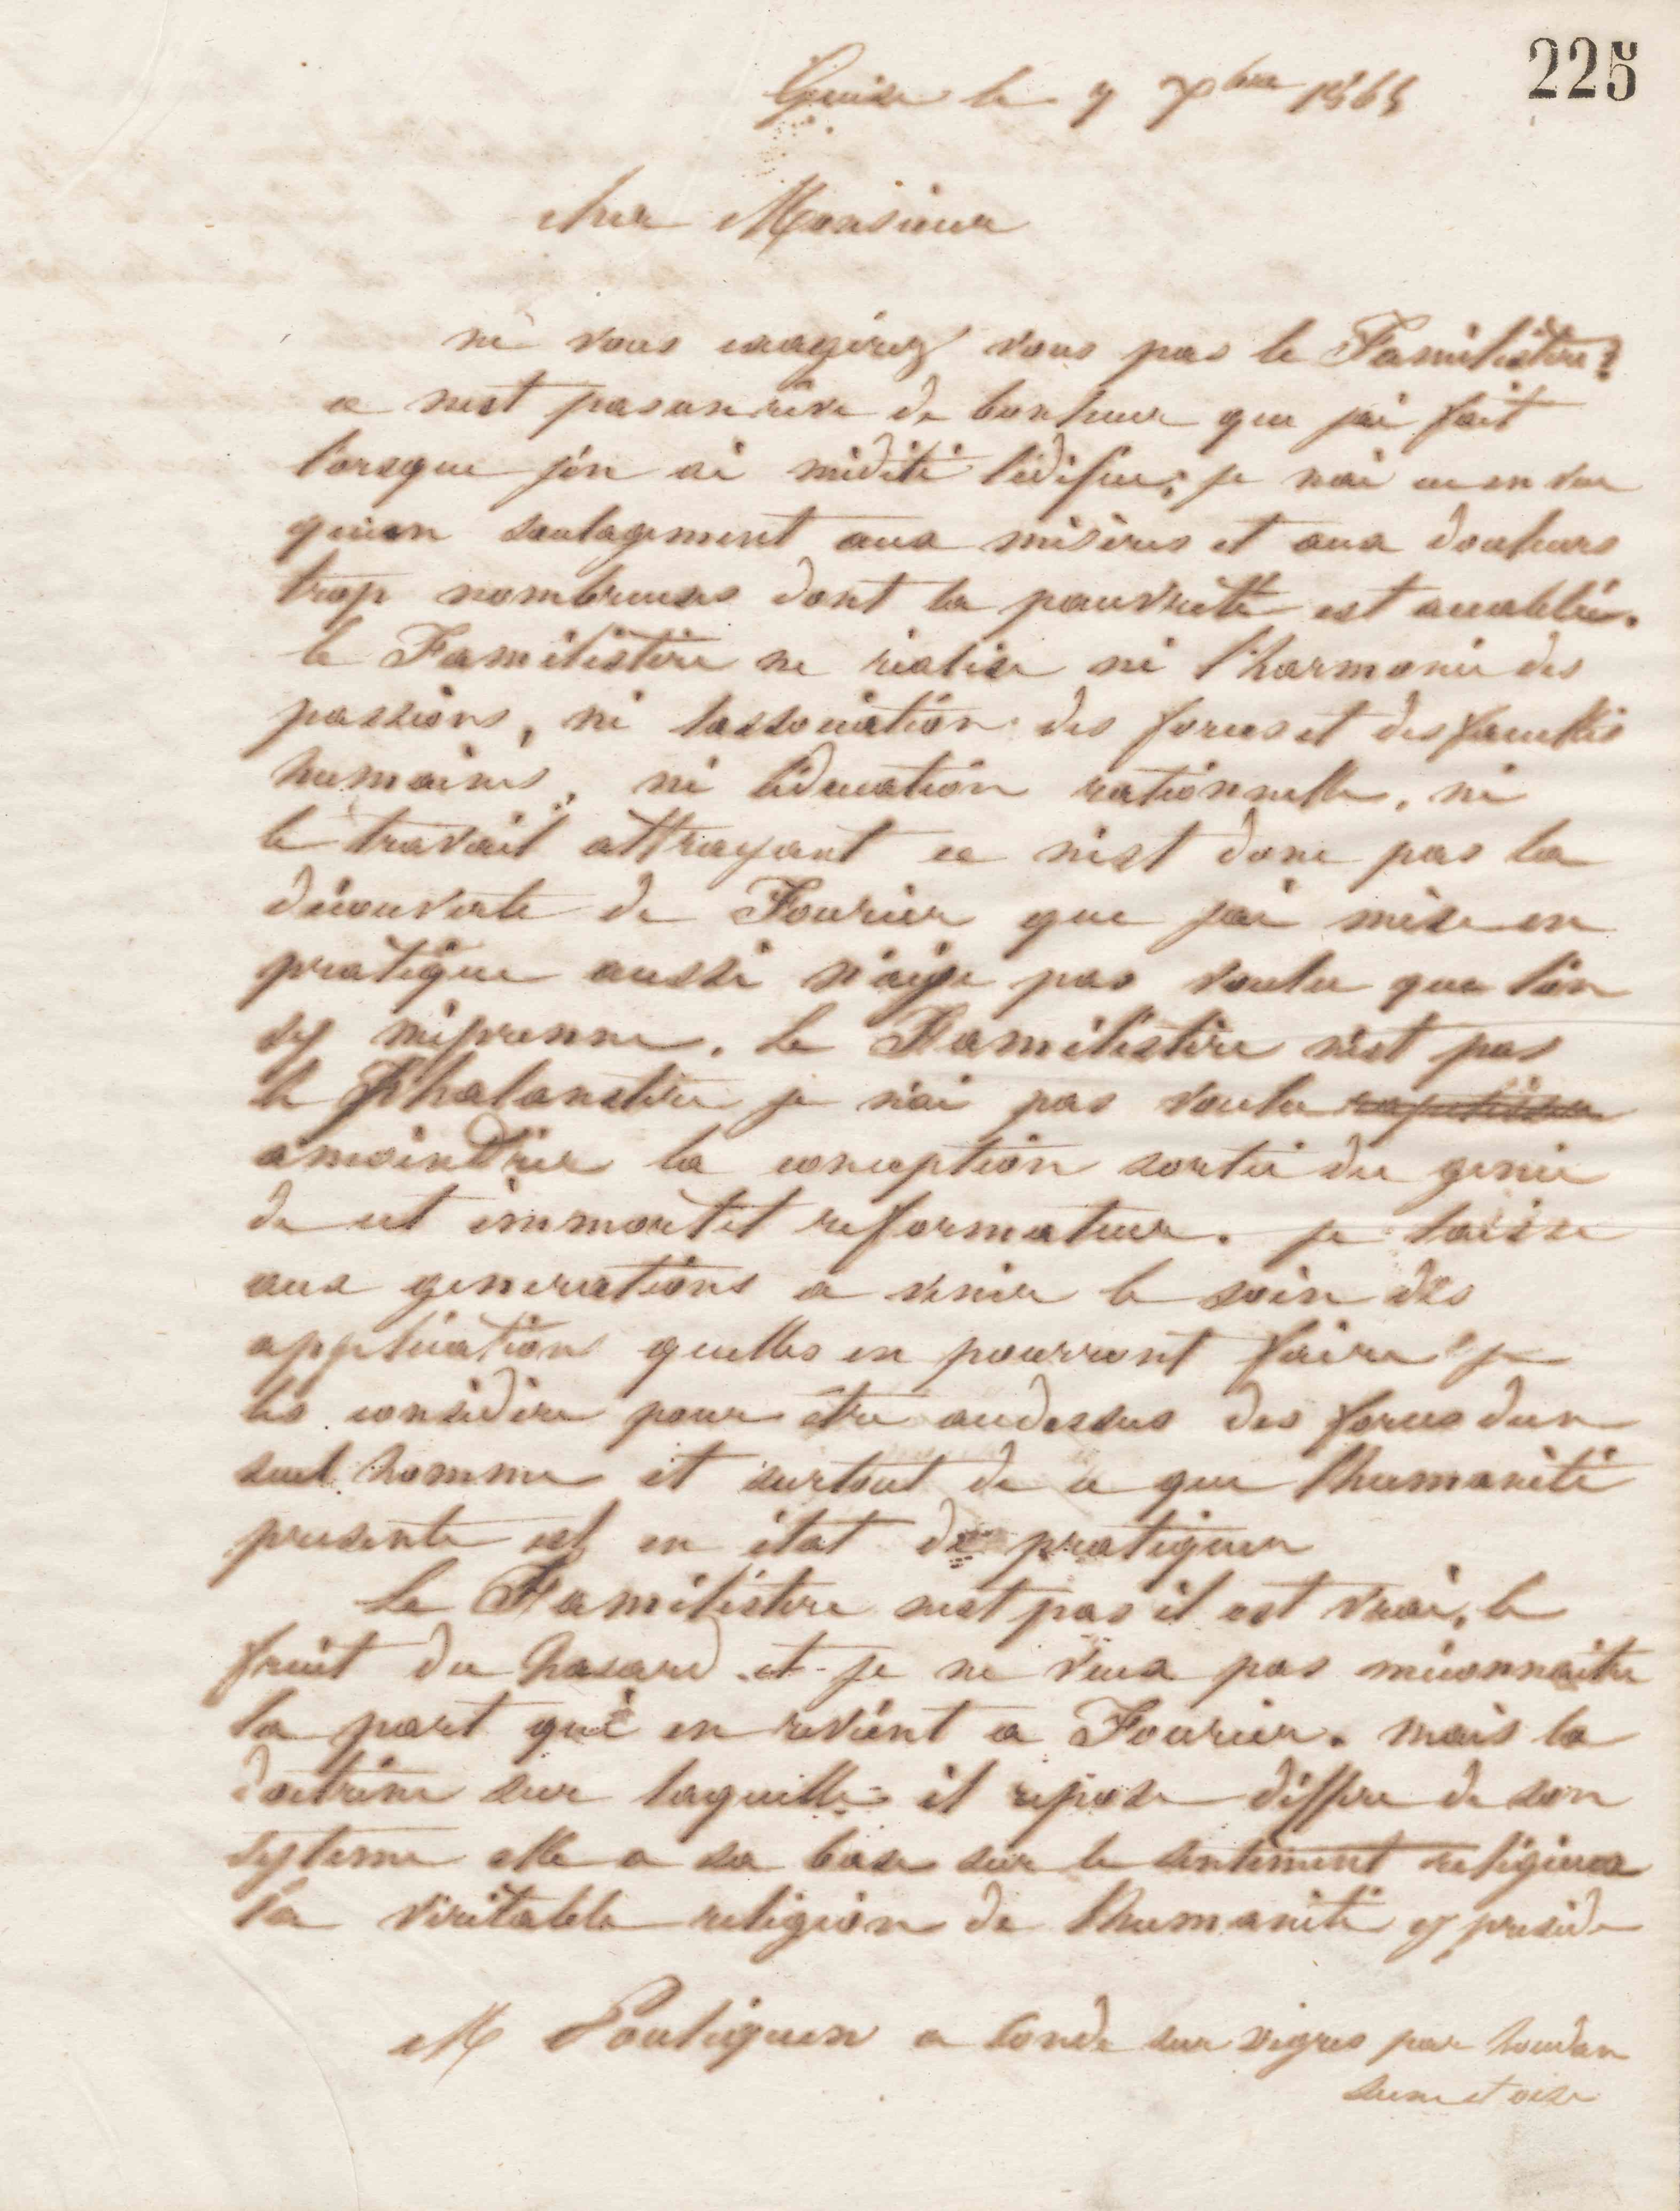 225
Guise le 9 7bre 1865
cher Monsieur
ne vous exagérez vous pas le Familistère?
ce nest pas un rêve de bonheur que jai fait
lorsque j'en ai médité lédifice; je nai eu en vue
qu'un soulagement aux misères et aux douleurs
trop nombreuses dont la pauvreté est accablée.
le Familistère ne réalise ni l'harmonie des
passions, ni lassociation des forces et des facultés
humaines, ni léducation rationnelle, ni
le travail attrayant ce n'est donc pas la
découverte de Fourier que jai mise en
pratique aussi n'aije pas voulu que lon
sy méprenne. Le Familistère n'est pas
le Phalanstère je n'ai pas voulu rapetisser
amoindrir la conception sortie du genie
de cet immortel reformateur. je laisse
aux generations a venir le soin des
application quelles en pourront faire je
les considère pour être audessus des forces dun
seul homme et surtout de ce que lhumanité
presente est en état de pratiquer
Le Familistère nest pas il est vrai, le
fruit du hasard et je ne veux pas méconnaitre
la part qui en revient a Fourier. mais la
doctrine sur laquelle il repose diffère de son
systeme elle a sa base sur le sentiment religieux
la véritable religion de lhumanité y préside
M Pouliquen a Condé sur vegres par houdan
seine et oise